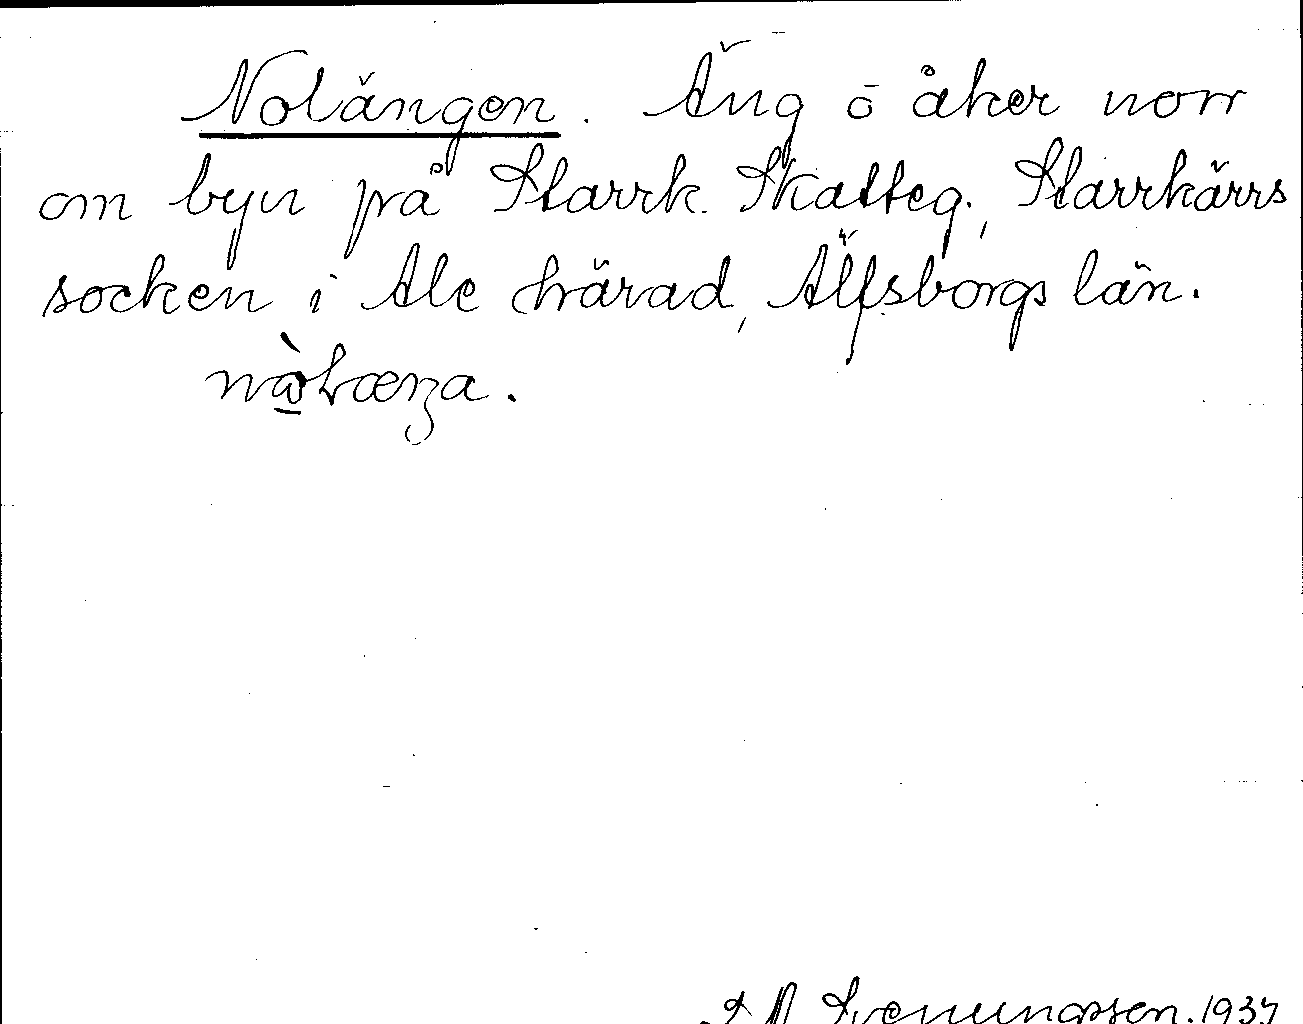 Nolängen. Äng ō åker norr
om byn på Starrk. Skatteg., Starrkärrs
socken i Ale härad, Älfsborgs län.
1937